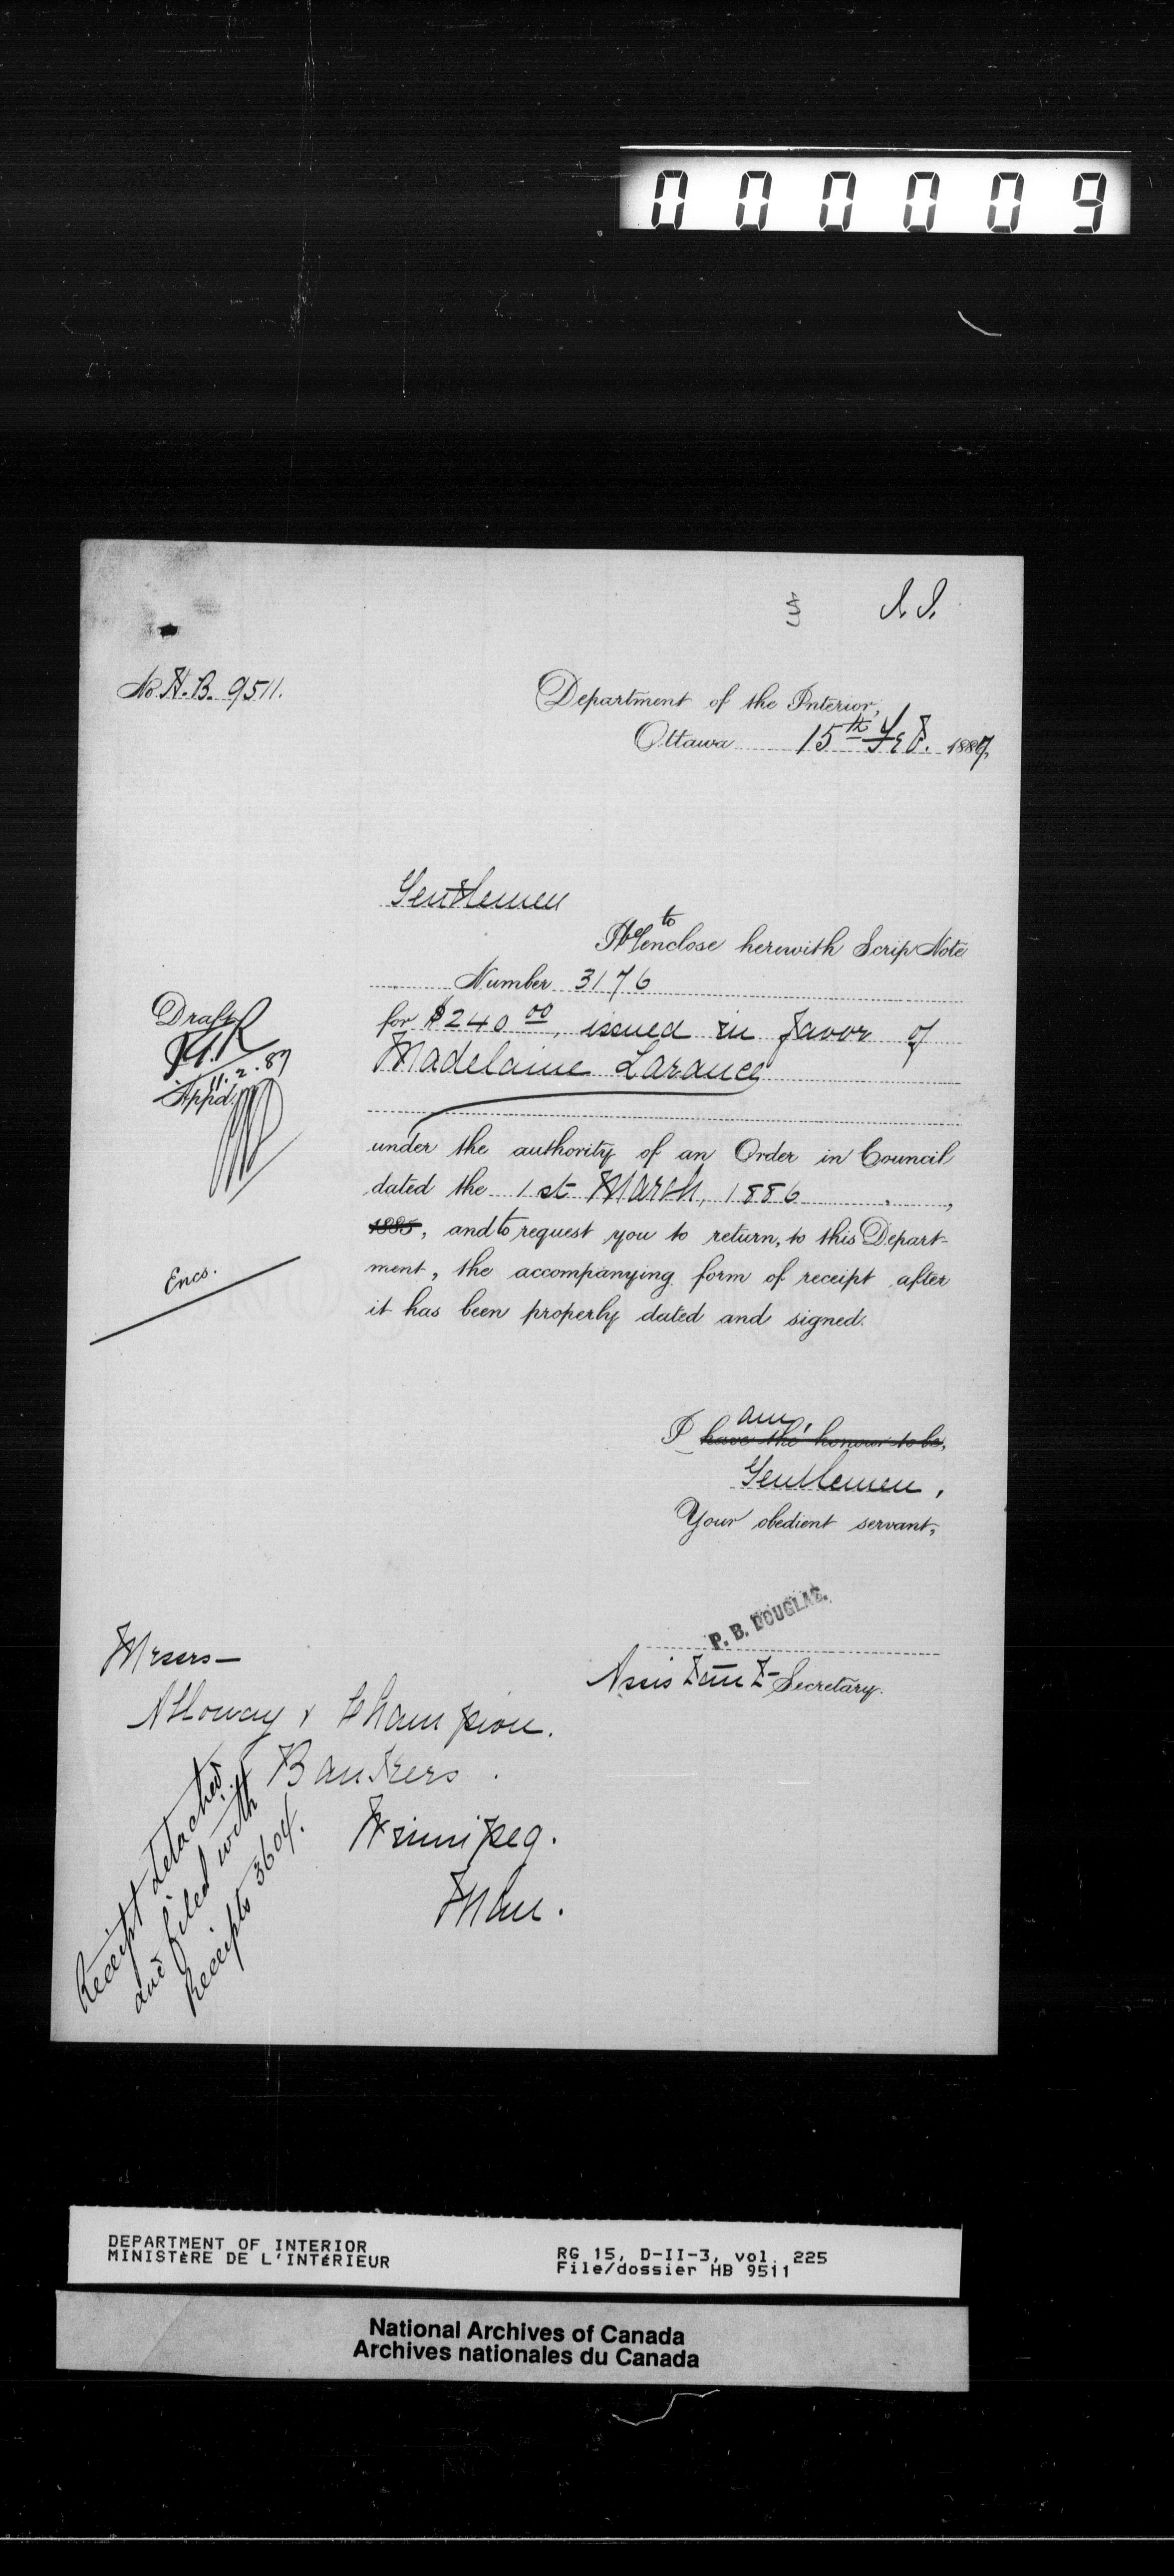 000009
No. H.B. 9511.
Department of the Interior,
Ottawa 15th Feb. 1887,
Gentlemen
I beg to enclose herewith Scrip Note
Number 3176
for $240 00, issued in favor of
Madelaine Larance
under the authority of an Order in Council
dated the 1st March, 1886,
1885, and to request you to return, to this Depart-
ment, the accompanying form of receipt after
it has been properly dated and signed.
Draft
11.2.87
Appd.
Encs.
I am,
have the honour to be,
Gentlemen,
Your obedient servant,
P. B. DOUGLAS.
Assistant Secretary.
Messrs—
Alloway & Champion.
Bankers.
Winnipeg.
Man.
Receipt detached
and filed with
Receipts 3604.
DEPARTMENT OF INTERIOR
MINISTÈRE DE L'INTÉRIEUR
RG 15, D-II-3, vol. 225
File/dossier HB 9511
National Archives of Canada
Archives nationales du Canada